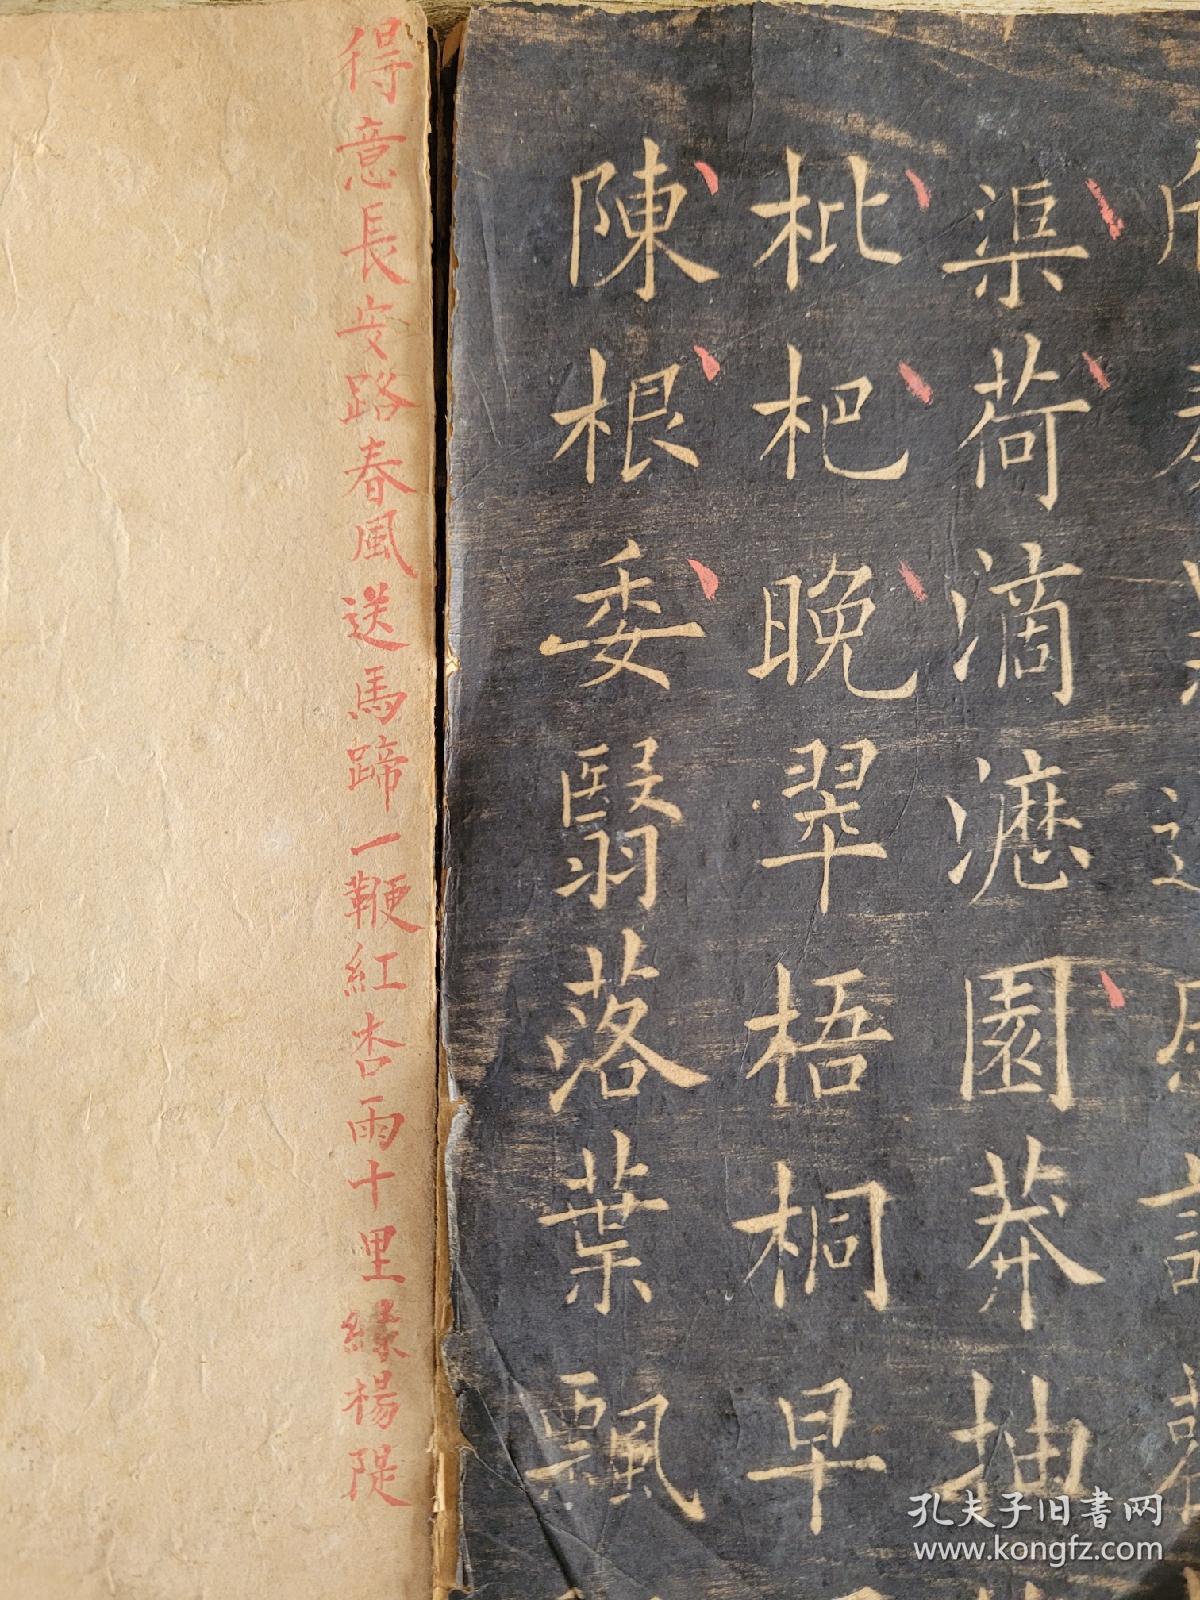 渠荷滴瀝園莽抽
枇杷晚翠梧桐早
陳根委翳落葉飄
得意長安路春風送馬蹄一鞭紅杏雨十里緑楊隄
孔夫子旧书网
www.kongfz.com